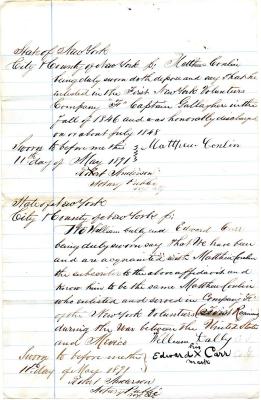 State of New York
City & County of New York ss. Matthew Conlin
being duly sworn doth depose and say that he
enlisted in the First New York Volunteers
Company "F" Captain Gallagher in the
Fall of 1846 and was honorably discharged
on or about July 1848
Sworn to before me this } Matthew Conlin
11th day of May 1891
Robert Anderson
Notary Public
State of New York
City & County of New York ss.
We William and Edward Carr
being duly sworn say That We have been
and are acquainted with Matthew Conlin
the subscriber to the above affidavit and
know him to be the same Matthew Conlin
who enlisted and served in Company "F"
of the New York Volunteers
during the War between the United States
and Mexico William
his
Sworn to before me this Edward X Carr
mark
11th day of May 1891
Robert Anderson
Notary Public